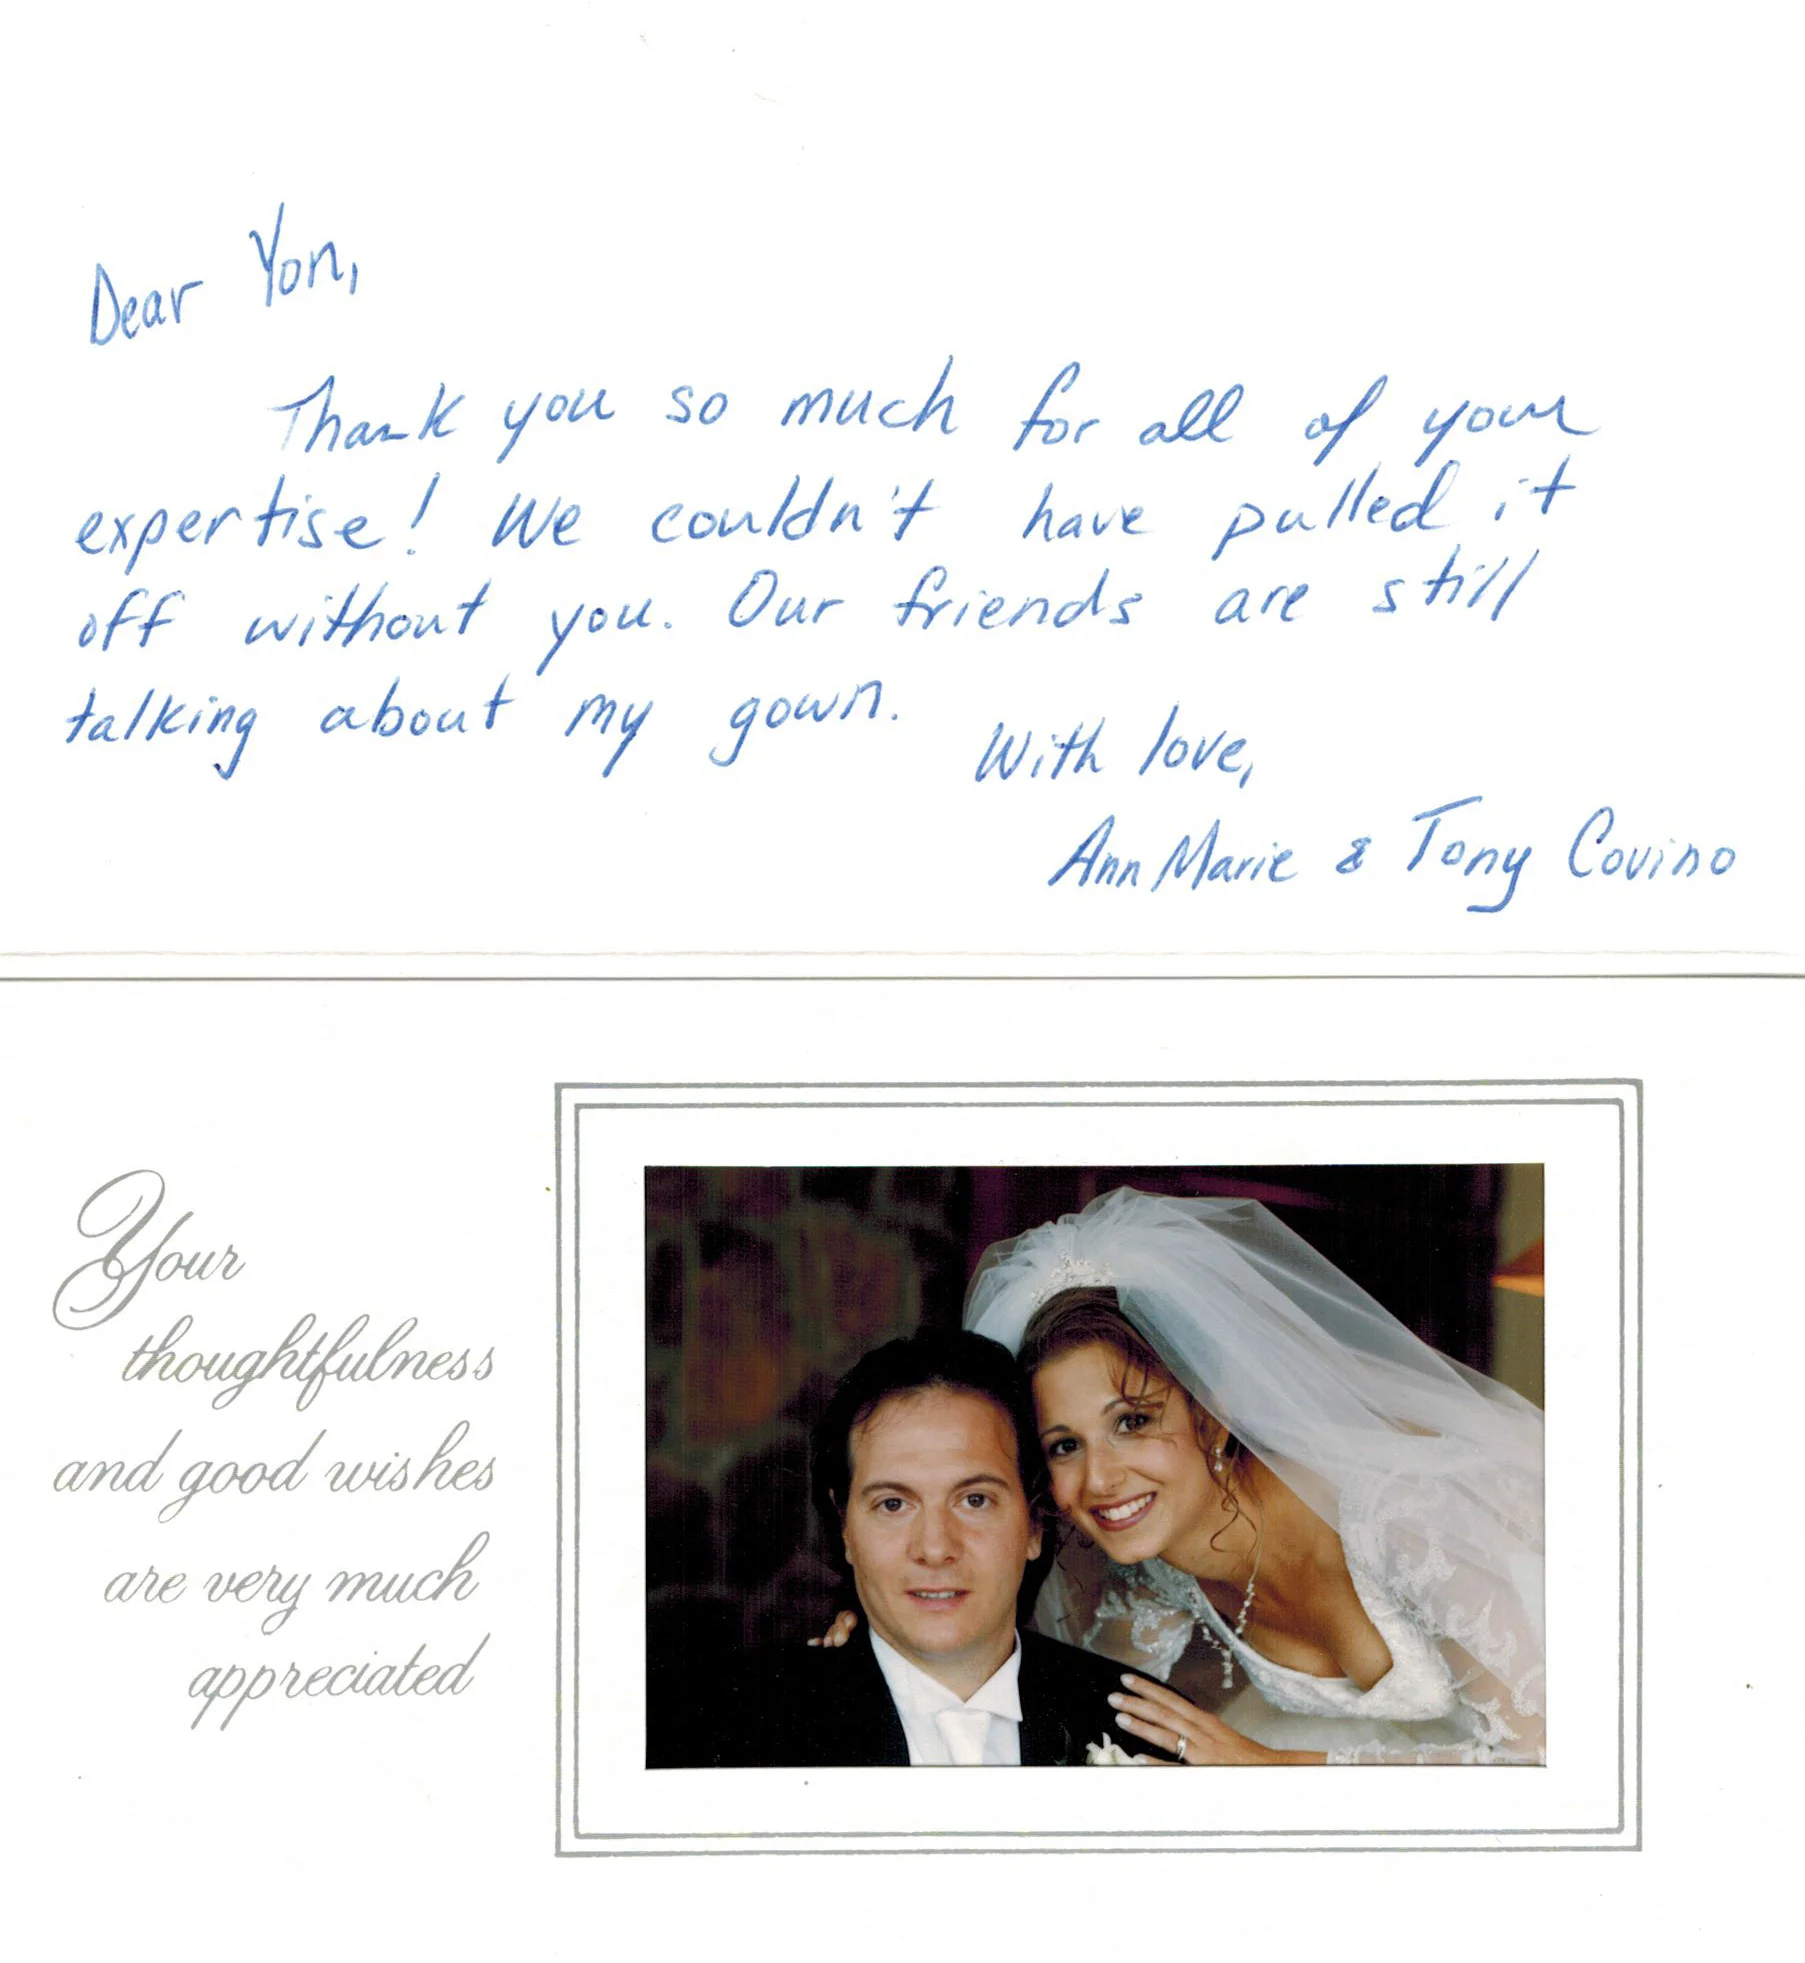 Dear Yon,
Thank you so much for all of your
expertise! We couldn't have pulled it
off without you. Our friends are still
talking about my gown.
With love,
Ann Marie & Tony Covino
Your
thoughtfulness
and good wishes
are very much
appreciated